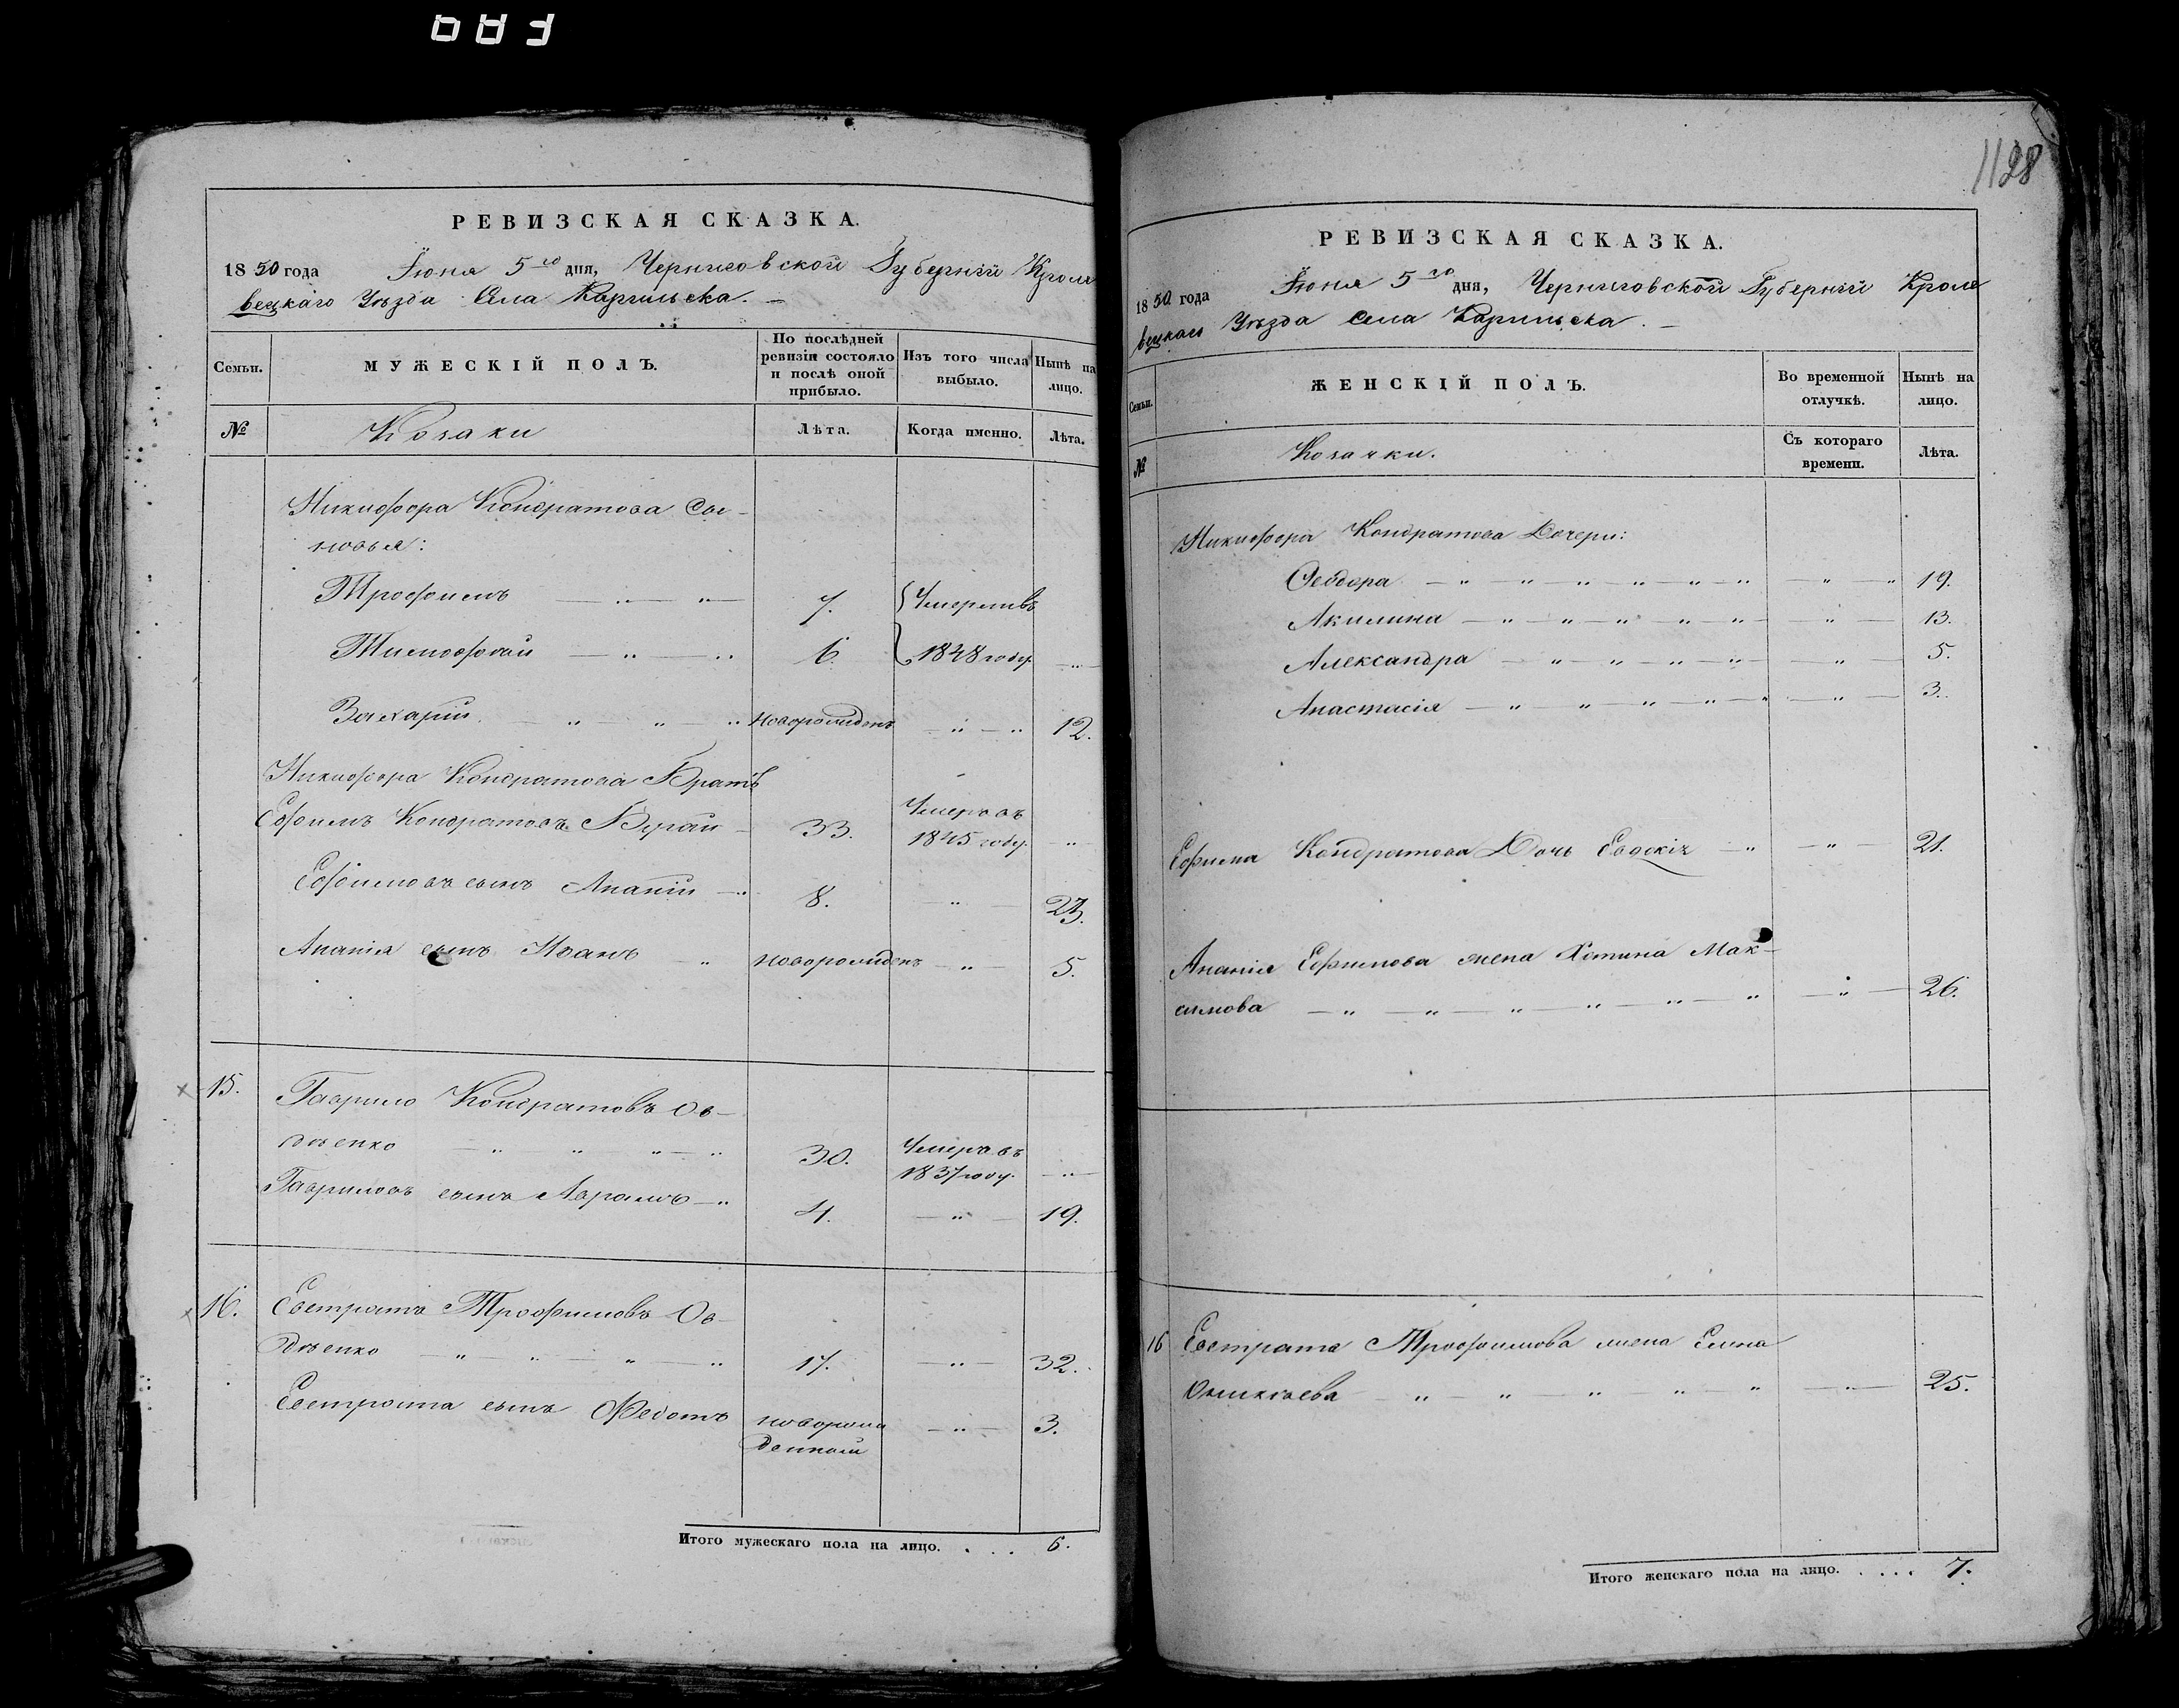 083
1128
РЕВИЗСКАЯ СКАЗКА.
1850 года Іюня 5го дня, Черниговской Губерніи Кроле
вецкаго Уѣзда Села Карыльска. —
Семьи. МУЖЕСКІЙ ПОЛЪ. По послѣдней ревизіи состояло и послѣ оной прибыло. Изъ того числа выбыло. Нынѣ на лицо.
№ Козаки Лѣта. Когда именно. Лѣта.
Никифора Кондратова Сы-
новья:
Трофимъ 7. Умерли въ
Тимофей 6. 1848 году.
Захарій новорожденъ 12.
Никифора Кондратова Братъ
Ефимъ Кондратовъ 33. Умеръ въ 1845 году.
Ефимовъ сынъ Ананій 8. 23.
Ананія сынъ Иванъ новорожденъ 5.
15. Гаврило Кондратовъ Ов-
дѣенко 30. Умеръ въ 1837 году.
Гавриловъ сынъ Аврамъ 4. 19.
16. Евстратъ Трофимовъ Ов-
дѣенко 17. 32.
Евстрата сынъ Федотъ новорож
денный 3.
Итого мужескаго пола на лицо. . . . 6.
РЕВИЗСКАЯ СКАЗКА.
1850 года Іюня 5го дня, Черниговской Губерніи Кроле
вецкаго Уѣзда Села Карыльска. —
Семьи. ЖЕНСКІЙ ПОЛЪ. Во временной отлучкѣ. Нынѣ на лицо.
№ Козачки. Съ котораго времени. Лѣта.
Никифора Кондратова Дочери:
Феодора 19.
Акилина 13.
Александра 5.
Анастасія 3.
Ефима Кондратова Дочь Евдокія 21.
Ананія Ефимова жена Хотина Мак-
симова 26.
16 Евстрата Трофимова жена Елена
25.
Итого женскаго пола на лицо. . . . . 7.